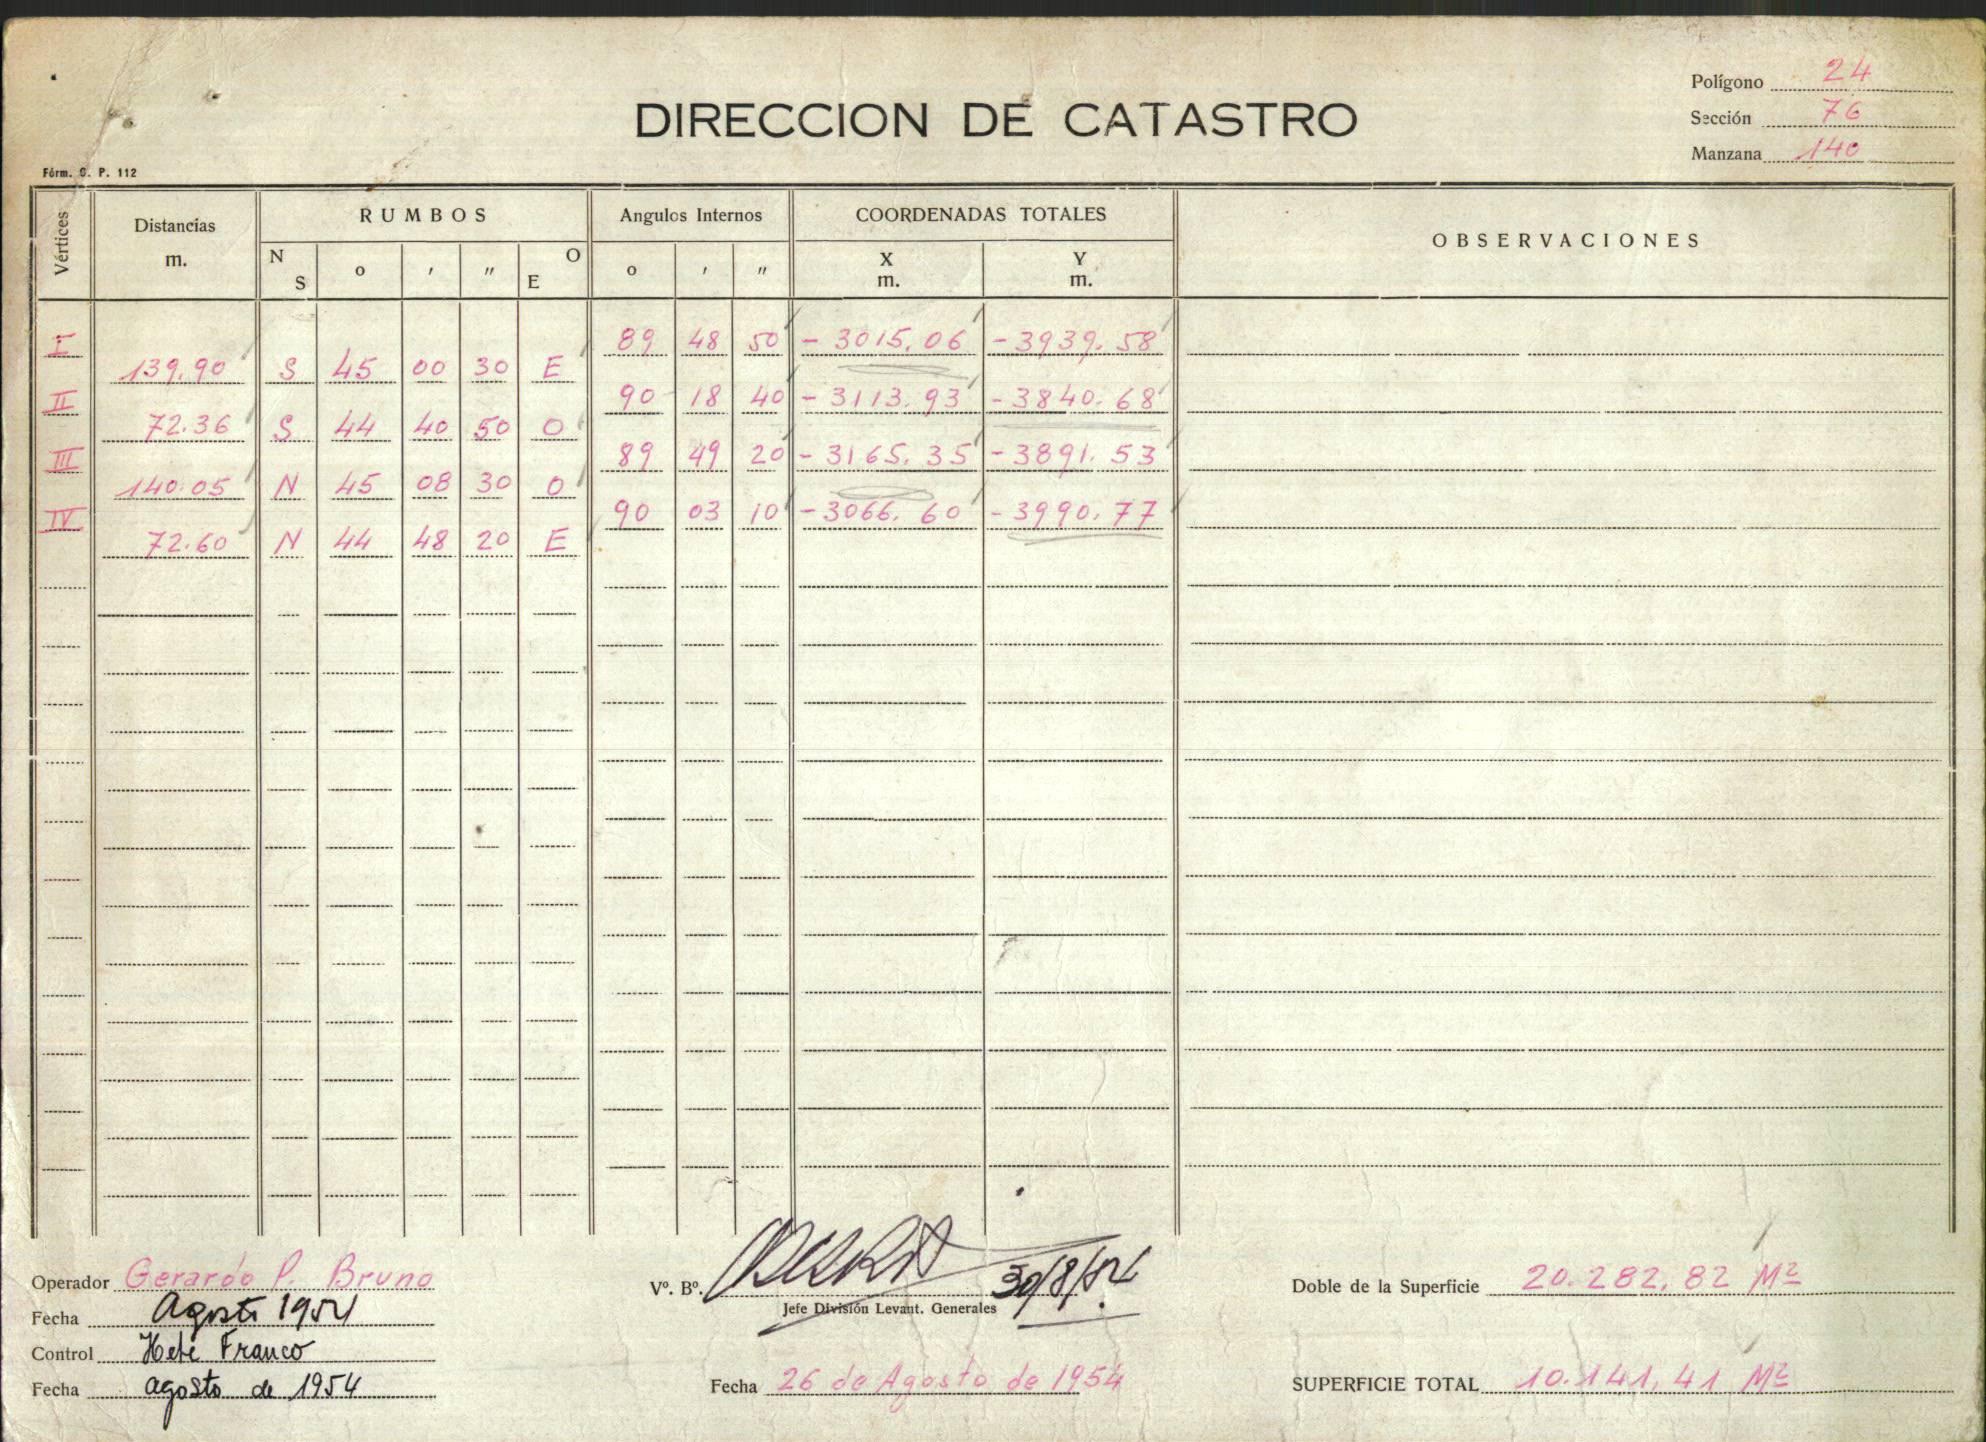 Polígono 24
DIRECCION DE CATASTRO
Sección 76
Manzana 140
Fórm. C. P. 112
Vértices Distancias m. RUMBOS Angulos Internos COORDENADAS TOTALES OBSERVACIONES
N S o ' " O E o ' " X m. Y m.
I 89 48 50 -3015.06 -3939.58
139.90 S 45 00 30 E
II 90 18 40 -3113.93 -3840.68
72.36 S 44 40 50 O
III 89 49 20 -3165.35 -3891.53
140.05 N 45 08 30 O
IV 90 03 10 -3066.60 -3990.77
72.60 N 44 48 20 E
Operador Gerardo P. Bruno
Vº. Bº. 30/8/54
Jefe División Levant. Generales
Doble de la Superficie 20.282,82 M2
Fecha Agosto 1954
Control Hebe Franco
Fecha agosto de 1954
Fecha 26 de Agosto de 1954
SUPERFICIE TOTAL 10.141,41 M2